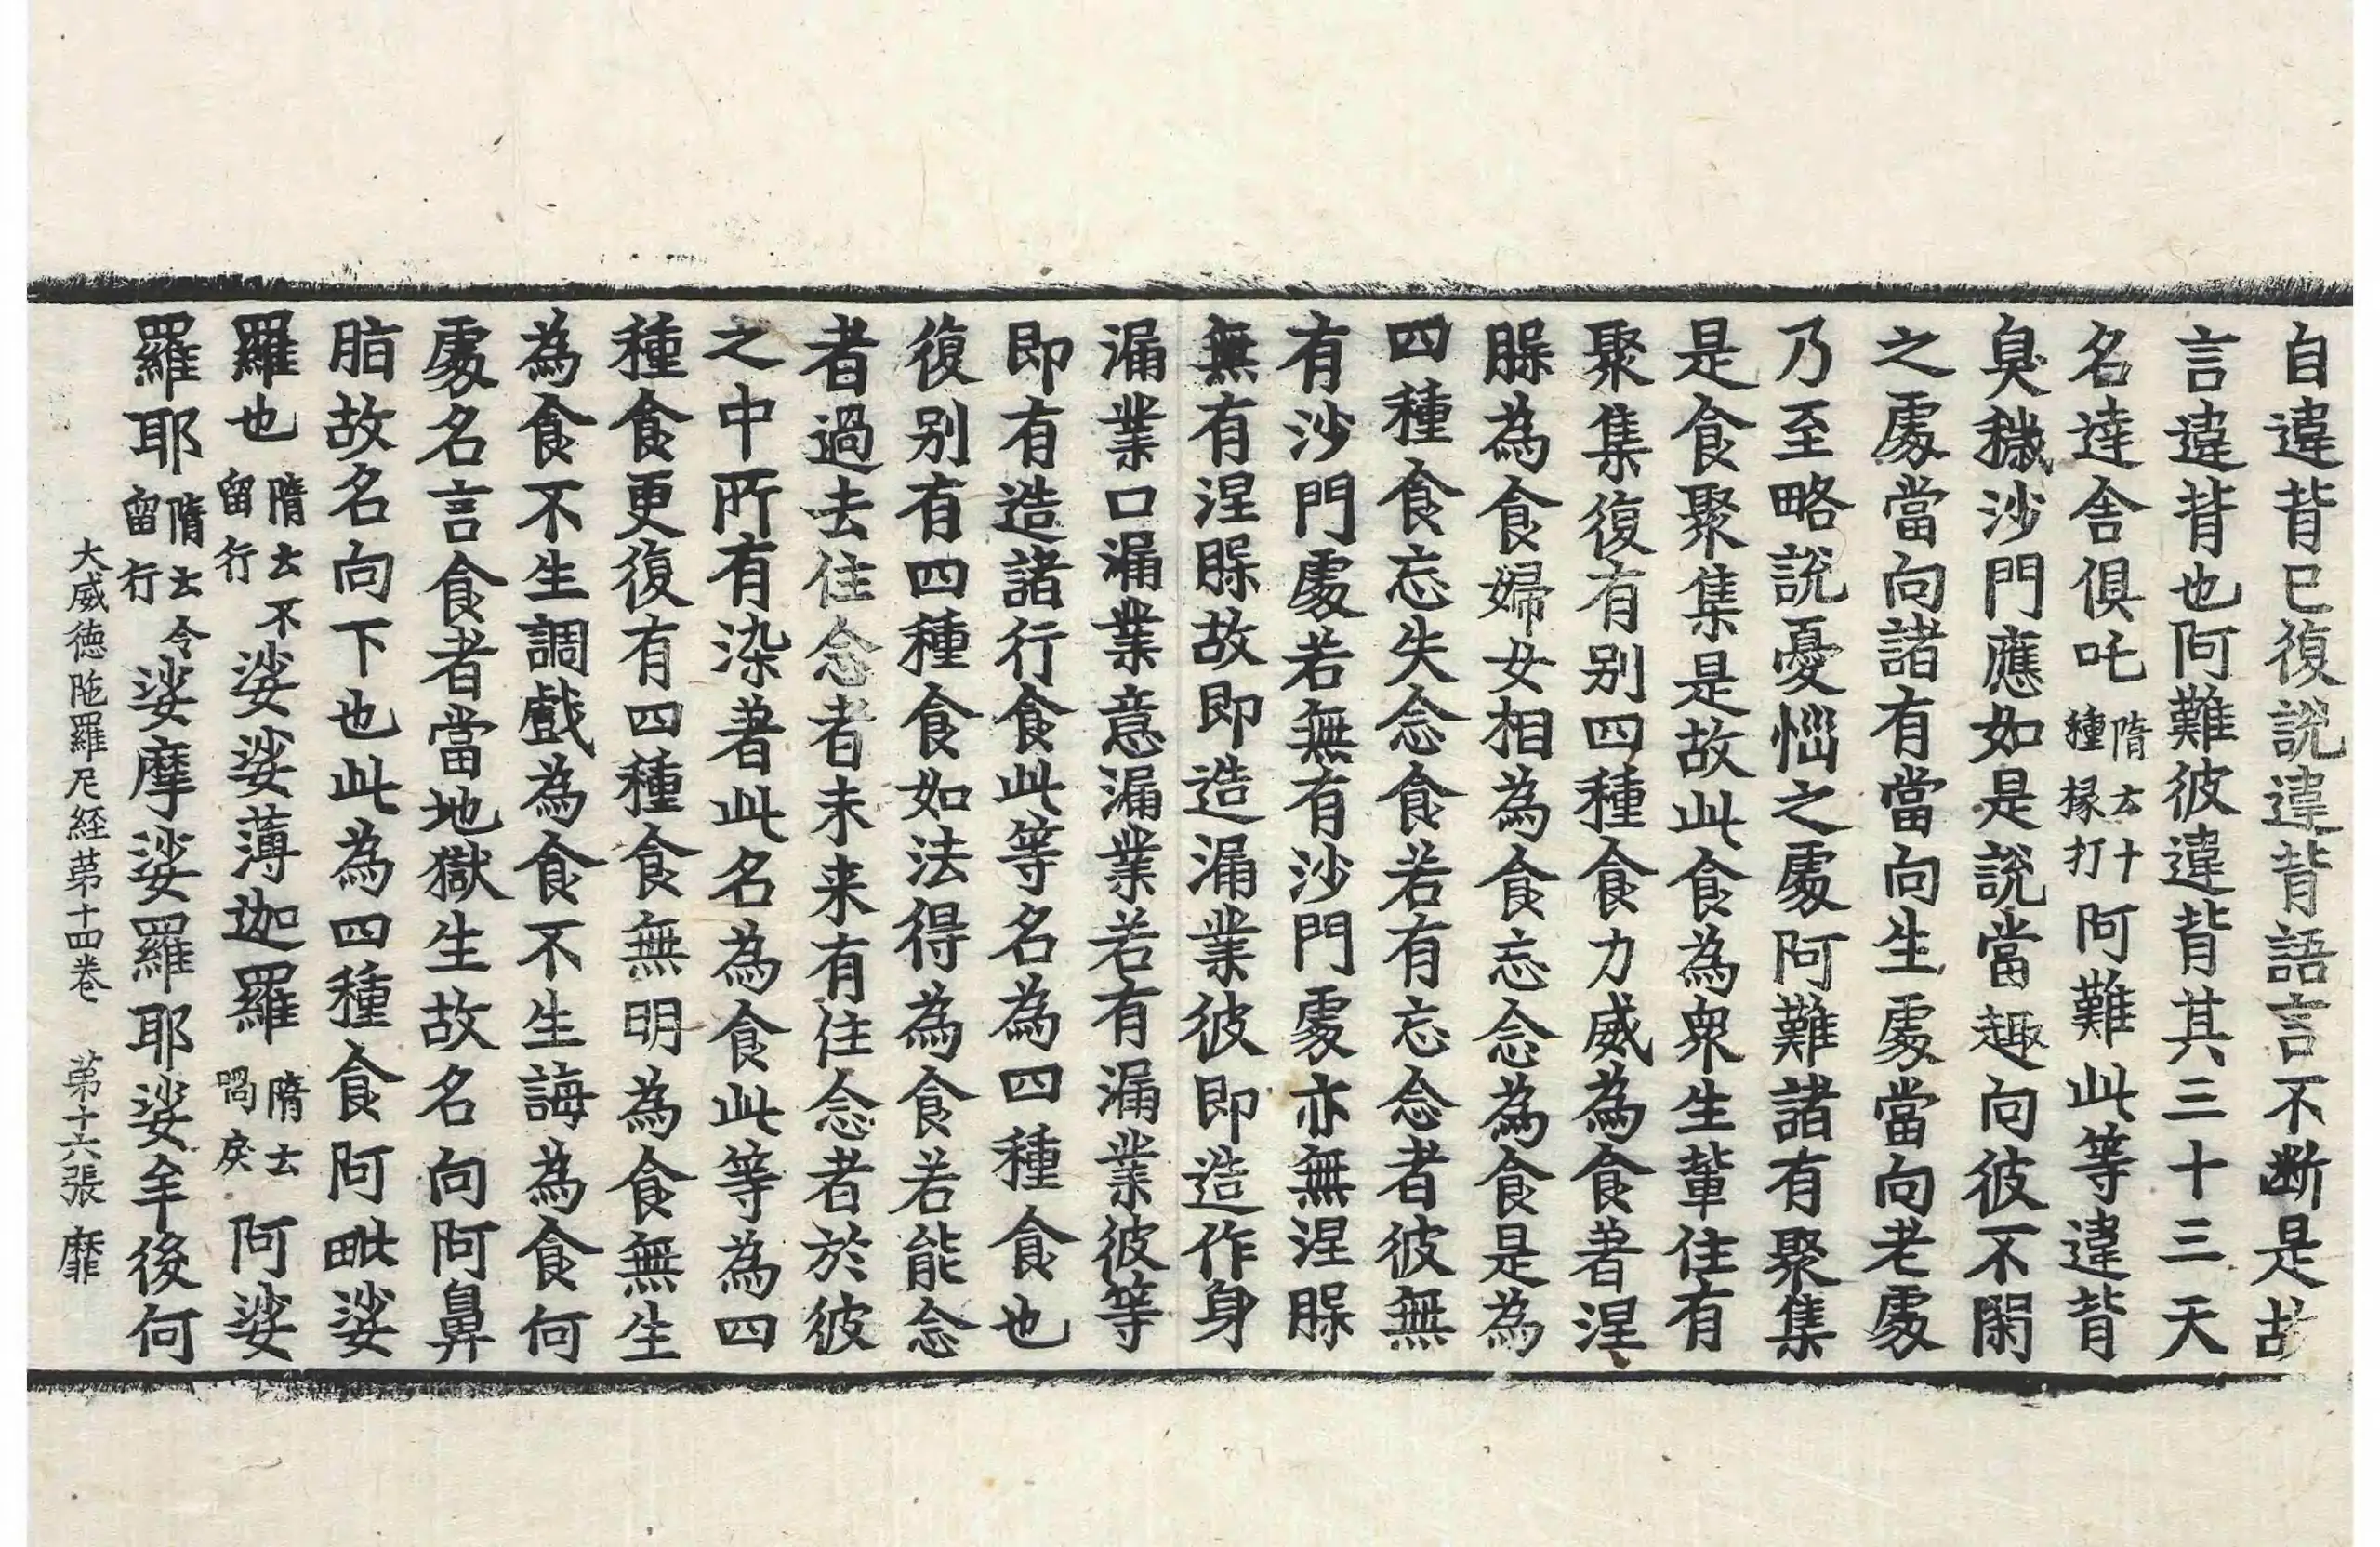 自違背已復說違背語言不断是故
言違背也阿難彼違背其三十三天
名達舍俱吒隋云十種掾打阿難此等違背
臭穢沙門應如是說當趣向彼不閑
之處當向諸有當向生處當向老處
乃至略說憂惱之處阿難諸有聚集
是食聚集是故此食為衆生輩住有
聚集復有别四種食力威為食著涅
脲為食婦女相為食忘念為食是為
四種食忘失念食若有忘念者彼無
有沙門處若無有沙門處亦無涅脲
無有涅脲故即造漏業彼即造作身
漏業口漏業意漏業若有漏業彼等
即有造諸行食此等名為四種食也
復别有四種食如法得為食若能念
者過去住念者未来有住念者於彼
之中所有染著此名為食此等為四
種食更復有四種食無明為食無生
為食不生調戲為食不生誨為食何
處名言食者當地獄生故名向阿鼻
脂故名向下也此為四種食阿毗娑
羅也隋云不留行娑娑薄迦羅隋云喎戾阿娑
羅耶隋云令留行娑摩娑羅耶娑牟後何
大威徳陁羅尼経苐十四卷 苐十六張 靡